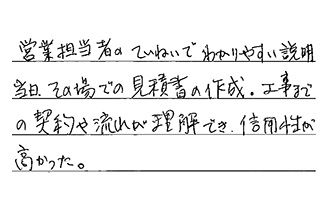 営業担当者のていねいでわかりやすい説明
当日、その場での見積書の作成。工事まで
の契約や流れが理解でき、信用性が
高かった。